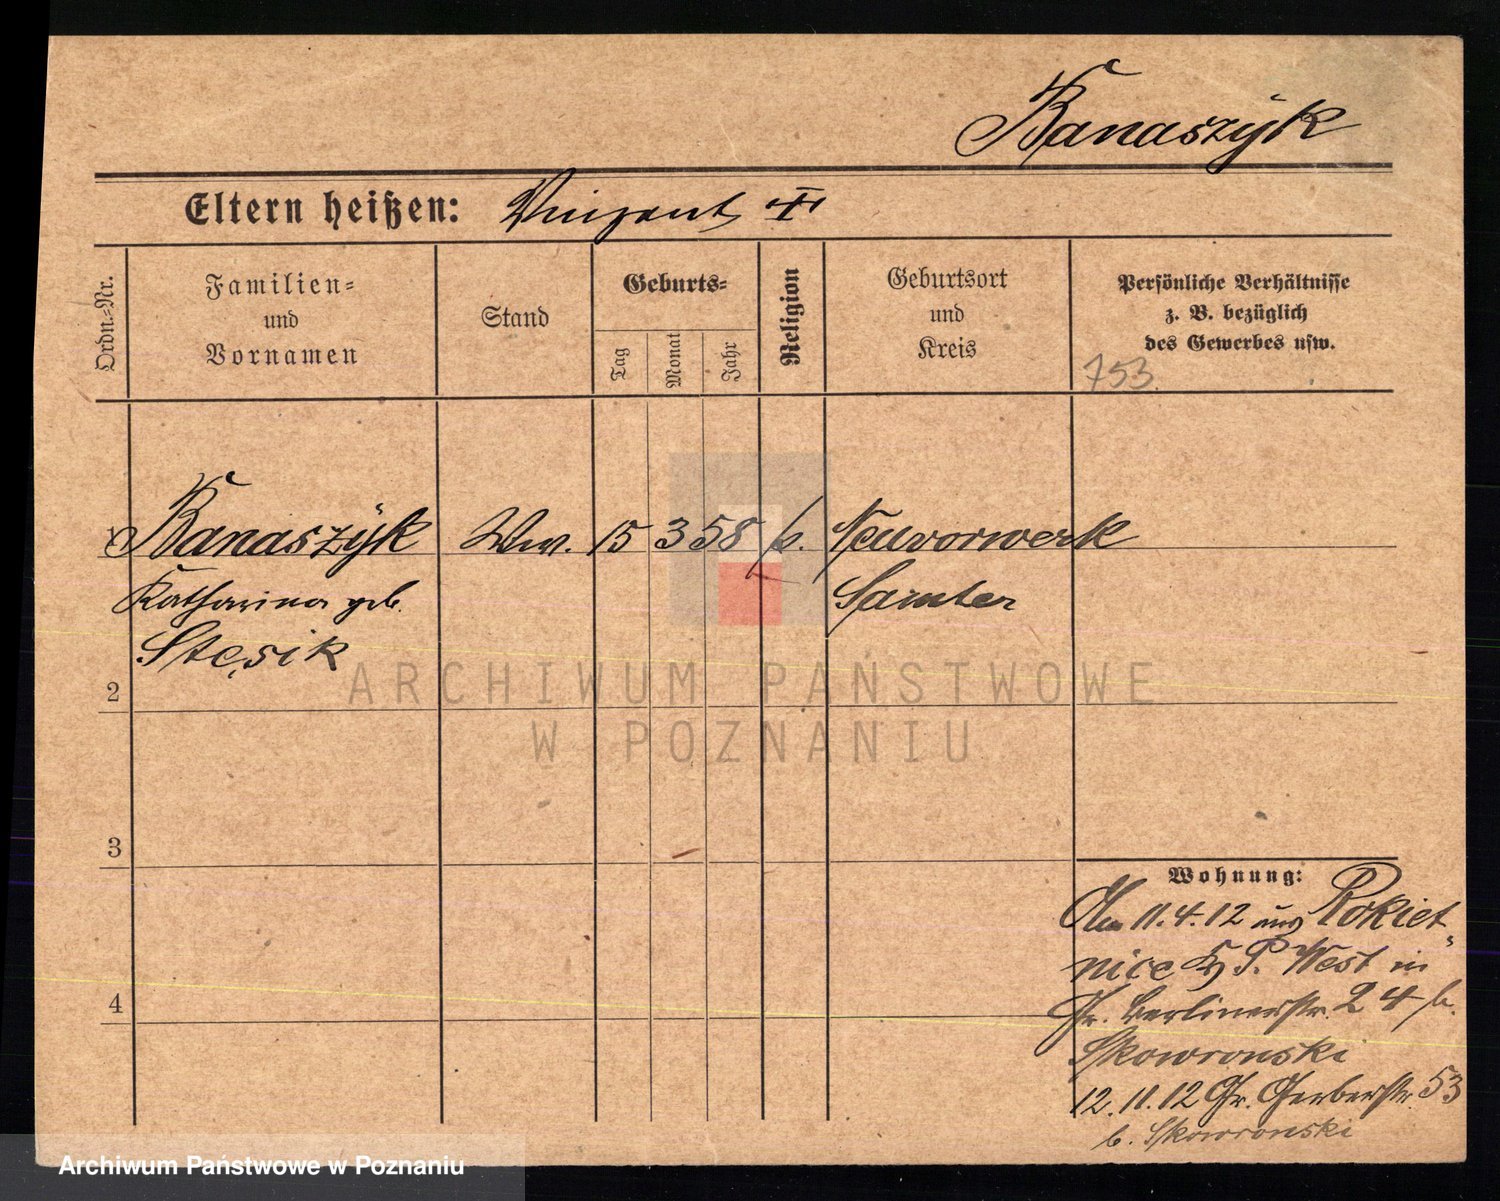 Banaszÿk
Eltern heißen: Vinzent
Ordn.-Nr.
Familien-
und
Vornamen
Stand
Geburts-
Tag
Monat
Jahr
Religion
Geburtsort
und
Kreis
Persönliche Verhältnisse
z. B. bezüglich
des Gewerbes usw.
753
1 Banaszÿk Ww. 15 3 58 k. Neuvorwerk
Katharina geb. Samter
Stęsik
2
3
4
Wohnung:
Am 11.4.12 aus Rokiet-
nice Kr P. West in
Gr. Berlinerstr. 24 b.
Skowronski
12.11.12 Gr. Gerberstr. 53
b. Skowronski
ARCHIWUM PAŃSTWOWE
W POZNANIU
Archiwum Państwowe w Poznaniu